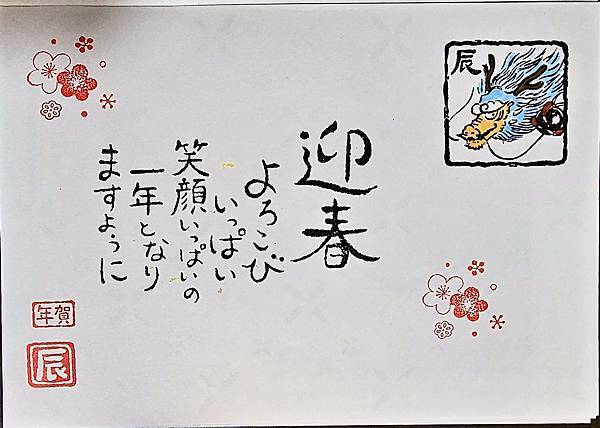 辰
迎春
よろこび
いっぱい
笑顔いっぱいの
一年となり
ますように
年賀
辰